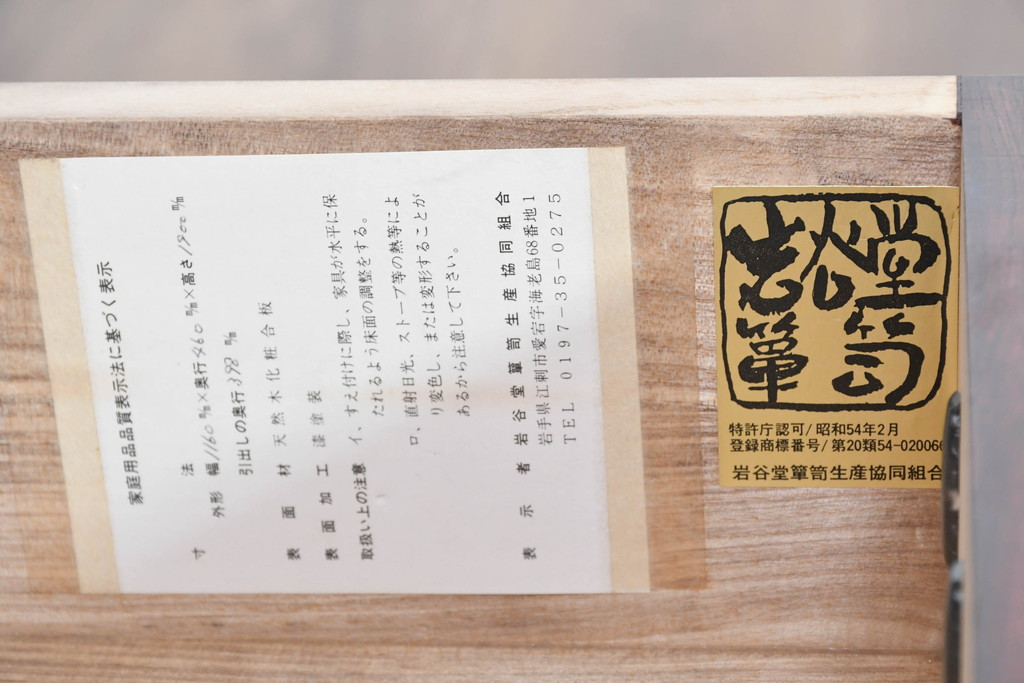 家庭用品品質表示法に基づく表示
寸法
外形 幅1160㎜×奥行460㎜×高さ1900㎜
引出しの奥行398㎜
表面材 天然木化粧合板
表面加工 漆塗装
取扱い上の注意
イ、すえ付けに際し、家具が水平に保
たれるよう床面の調整をする。
ロ、直射日光、ストーブ等の熱等によ
り変色し、または変形することが
あるから注意して下さい。
表示者 岩谷堂簞笥生産協同組合
岩手県江刺市愛宕字海老島68番地1
TEL 0197-35-0275
岩谷堂
簞笥
特許庁認可/昭和54年2月
登録商標番号/第20類54-020066
岩谷堂簞笥生産協同組合